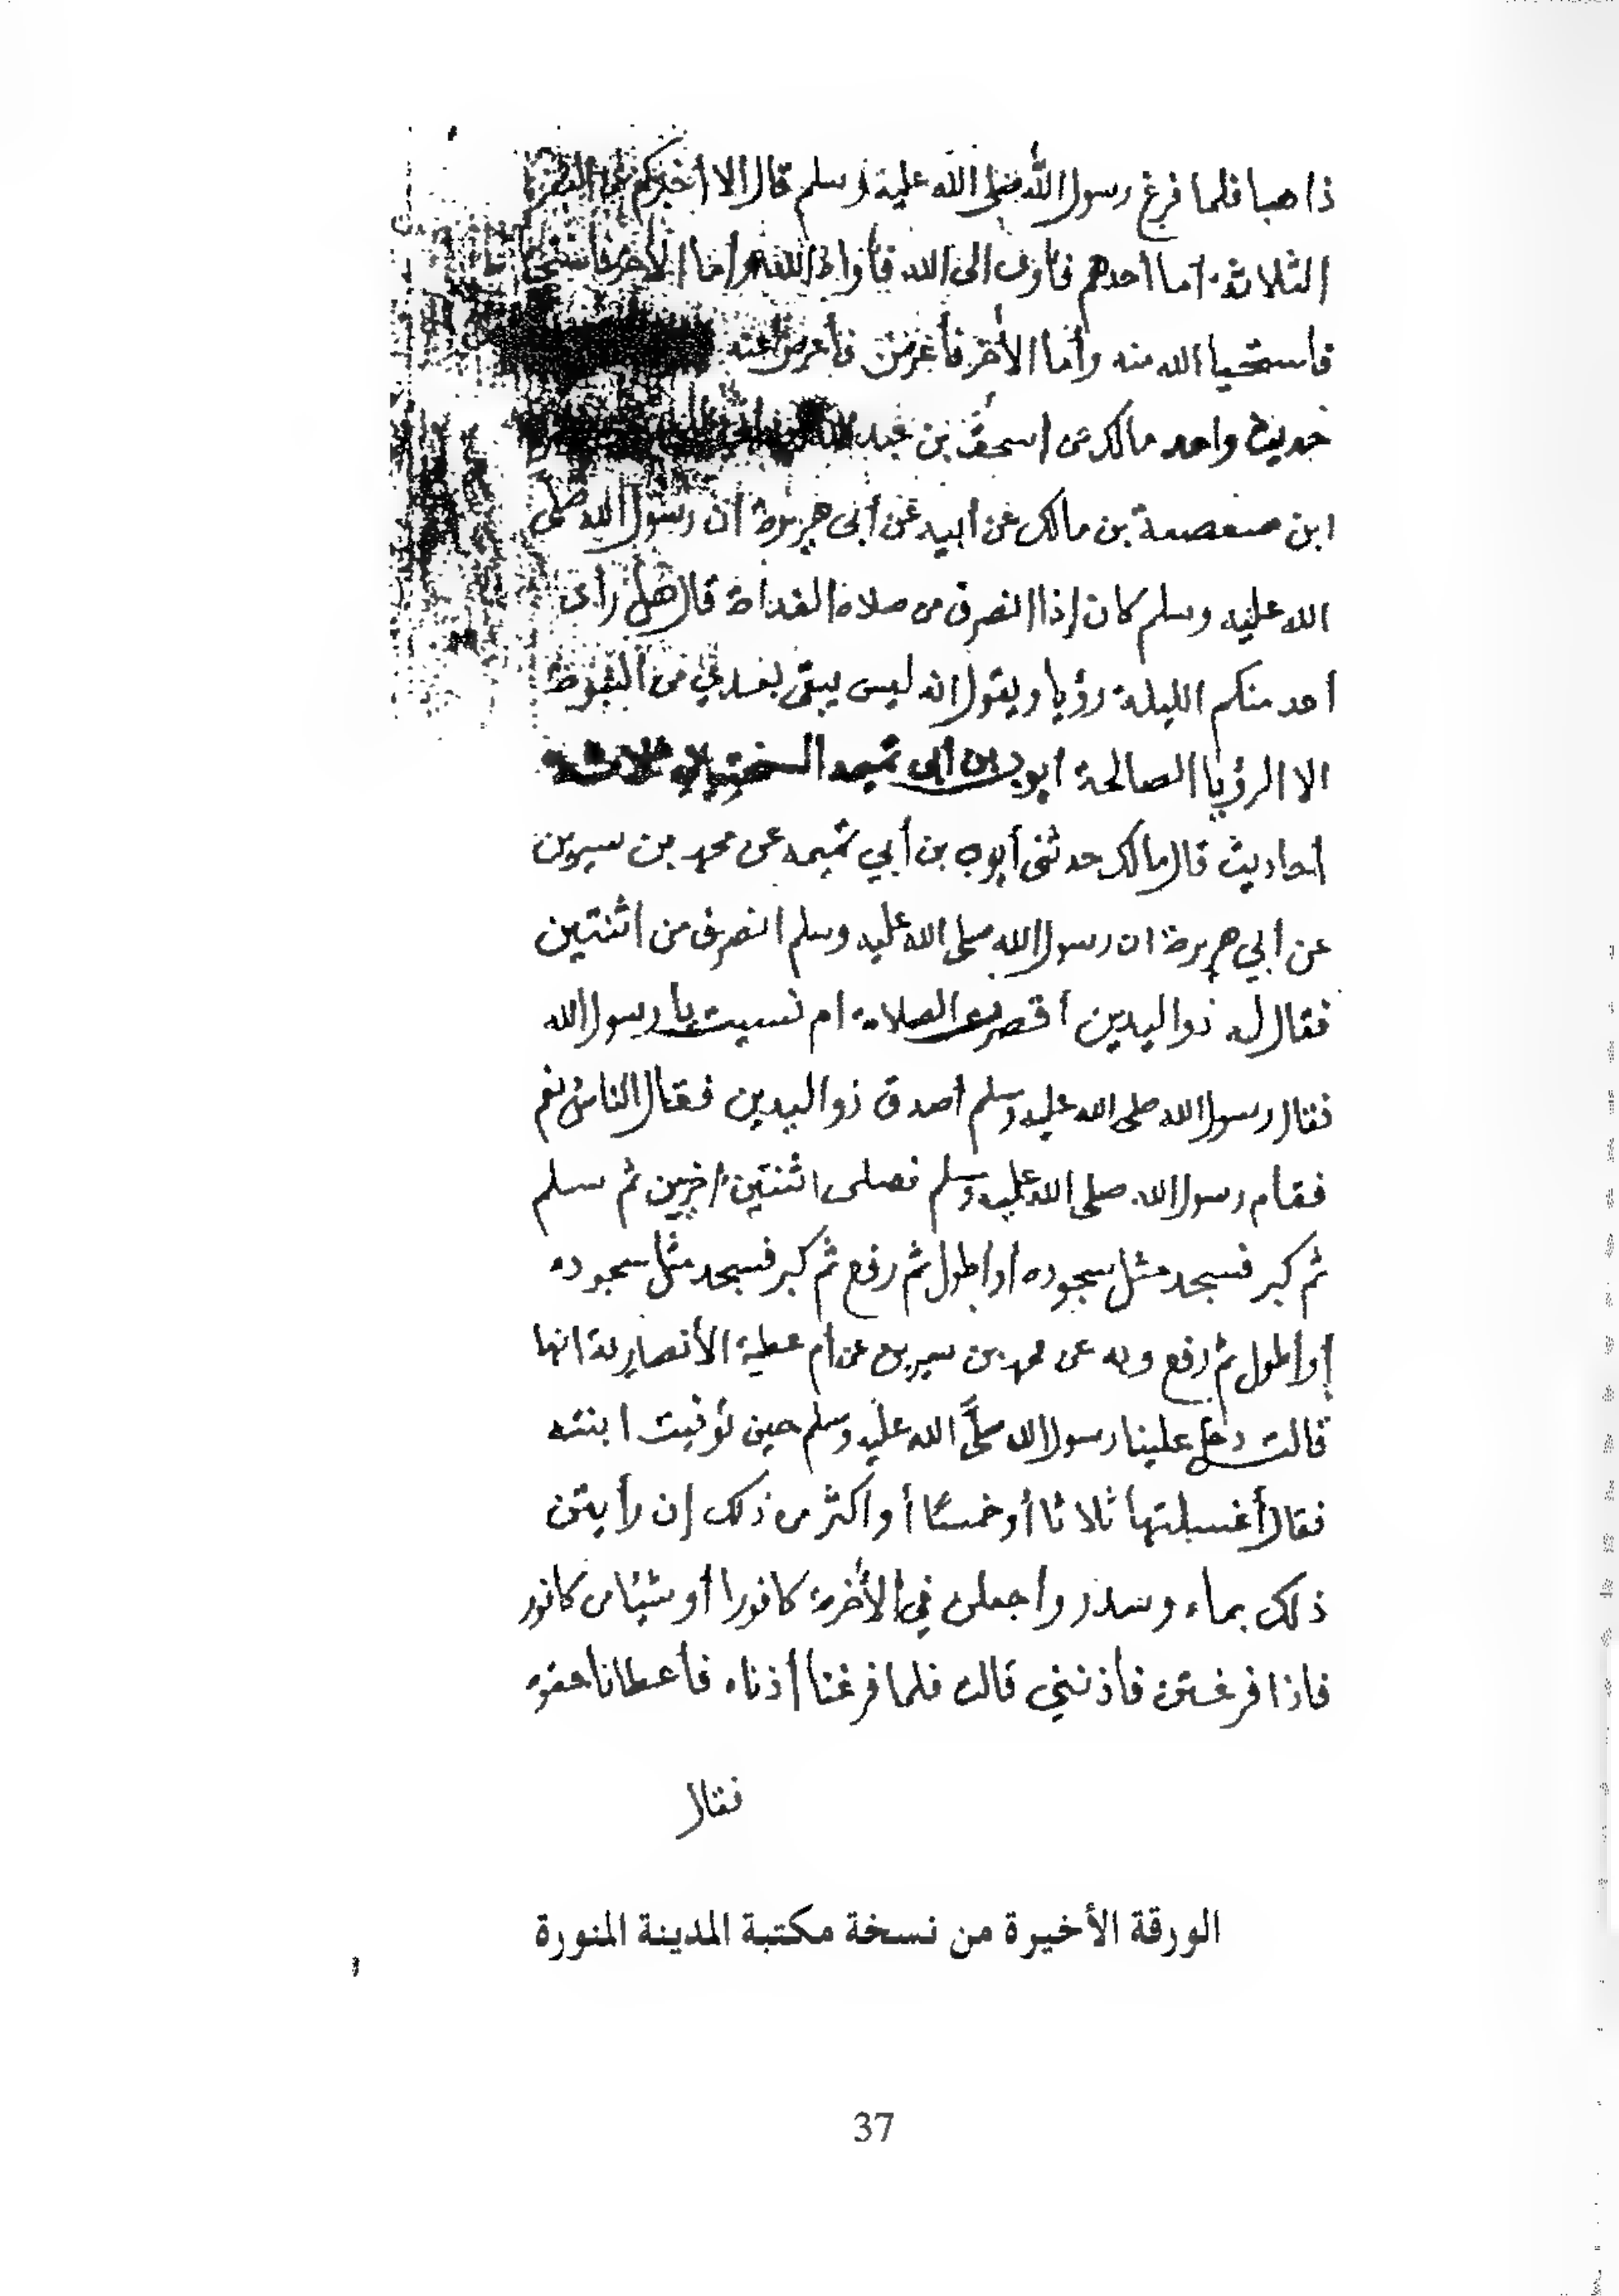 ذاهبا فلما فرغ رسول الله صلى الله عليه وسلم قال الا أخبركم عن النفر
الثلاثة أما أحدهم فأوى الى الله فأواه الله وأما الآخر فاستحيا
فاستحيا الله منه وأما الآخر فأعرض فأعرض الله عنه
حديث واحد مالك عن اسحق بن عبد الله
ابن صعصعة بن مالك عن أبيه عن أبي هريرة أن رسول الله صلى
الله عليه وسلم كان إذا انصرف من صلاة الغداة قال هل رأى
احد منكم الليلة رؤيا ويقول انه ليس يبقى بعدي من النبوة
الا الرؤيا الصالحة ايوب بن أبي تميمه السختياني ثلاثة
أحاديث قال مالك حدثني أيوب بن أبي تميمه عن محمد بن سيرين
عن أبي هريرة ان رسول الله صلى الله عليه وسلم انصرف من اثنتين
فقال له ذو اليدين أقصرت الصلاة ام نسيت يا رسول الله
فقال رسول الله صلى الله عليه وسلم أصدق ذو اليدين فقال الناس نعم
فقام رسول الله صلى الله عليه وسلم فصلى اثنتين أخريين ثم سلم
ثم كبر فسجد مثل سجوده أو أطول ثم رفع ثم كبر فسجد مثل سجوده
أو أطول ثم رفع وبه عن محمد بن سيرين عن أم عطية الأنصارية انها
قالت دخل علينا رسول الله صلى الله عليه وسلم حين توفيت ابنته
فقال أغسلنها ثلاثا أو خمسًا أو أكثر من ذلك إن رأيتن
ذلك بماء وسدر واجعلن في الأخرة كافورا أو شيئا من كافور
فاذا فرغتن فأذنني قالت فلما فرغنا أذناه فأعطانا حقوه
فقال
الورقة الأخيرة من نسخة مكتبة المدينة المنورة
37